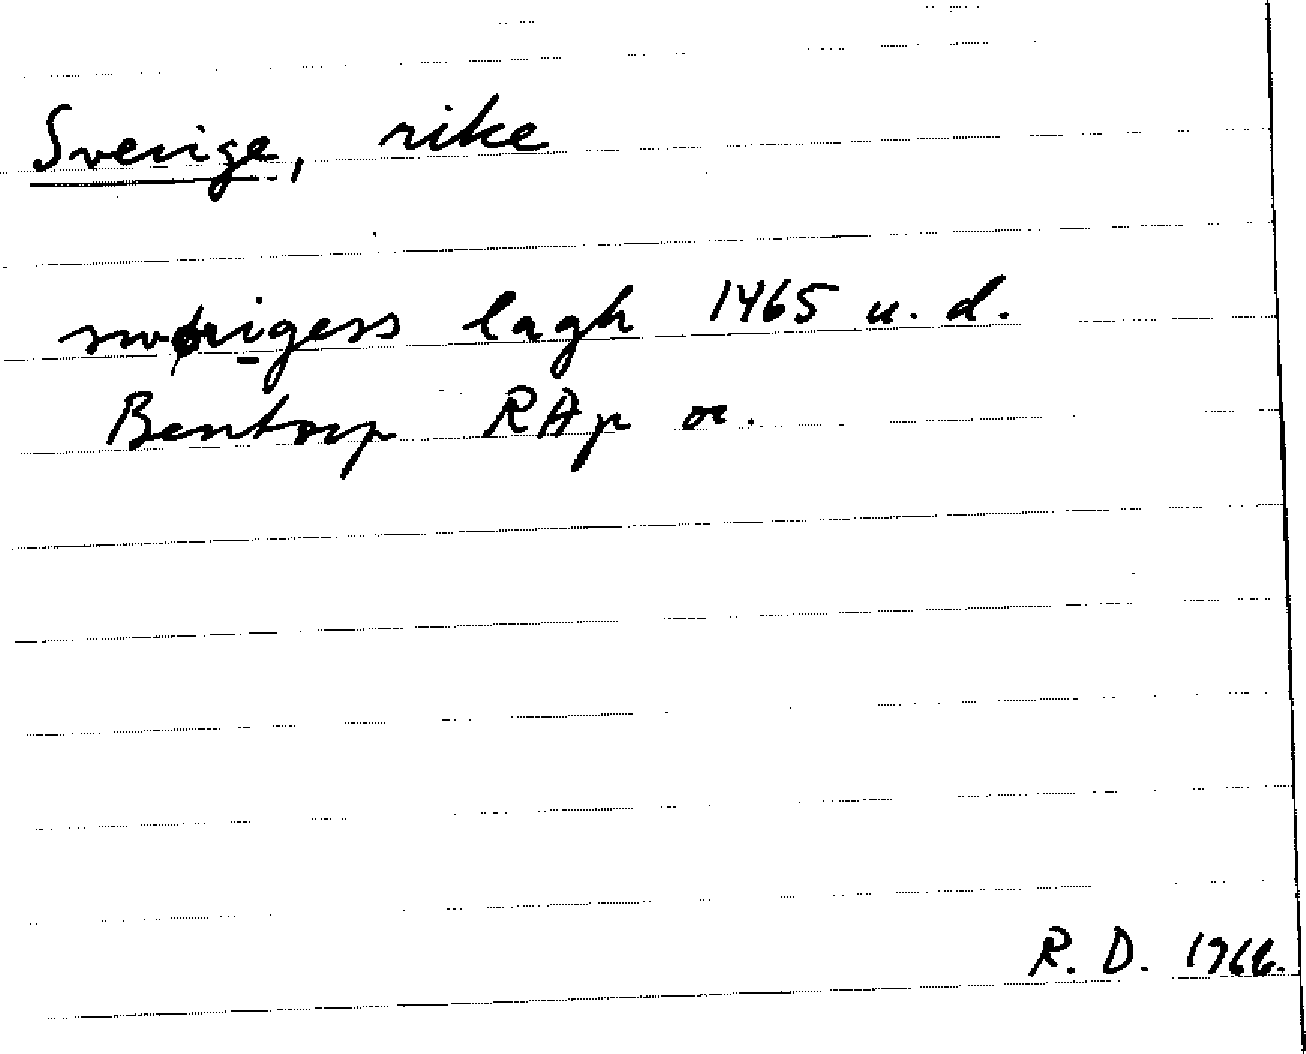 Sverige, rike
swørigess lagh 1465 u. d.
Bentorp RAp or.
R. D. 1966.